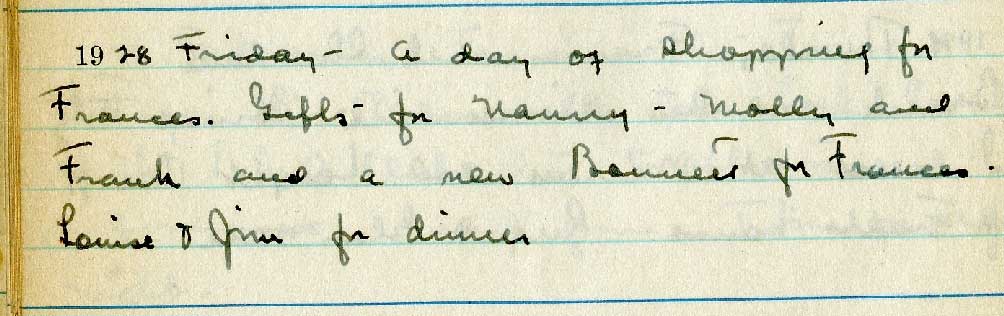 1928 Friday - A day of shopping for
Frances. Gifts for Nanny - Molly and
Frank and a new Bonnet for Frances.
Louise & Jim for dinner